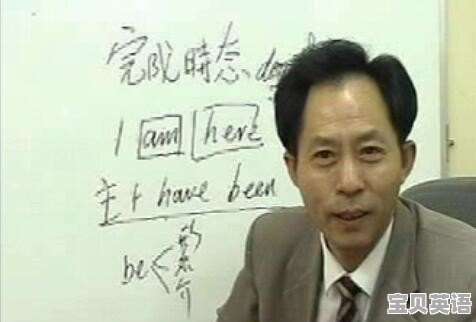 完成時态
I am here
主+ have been
be< 形 介
宝贝英语